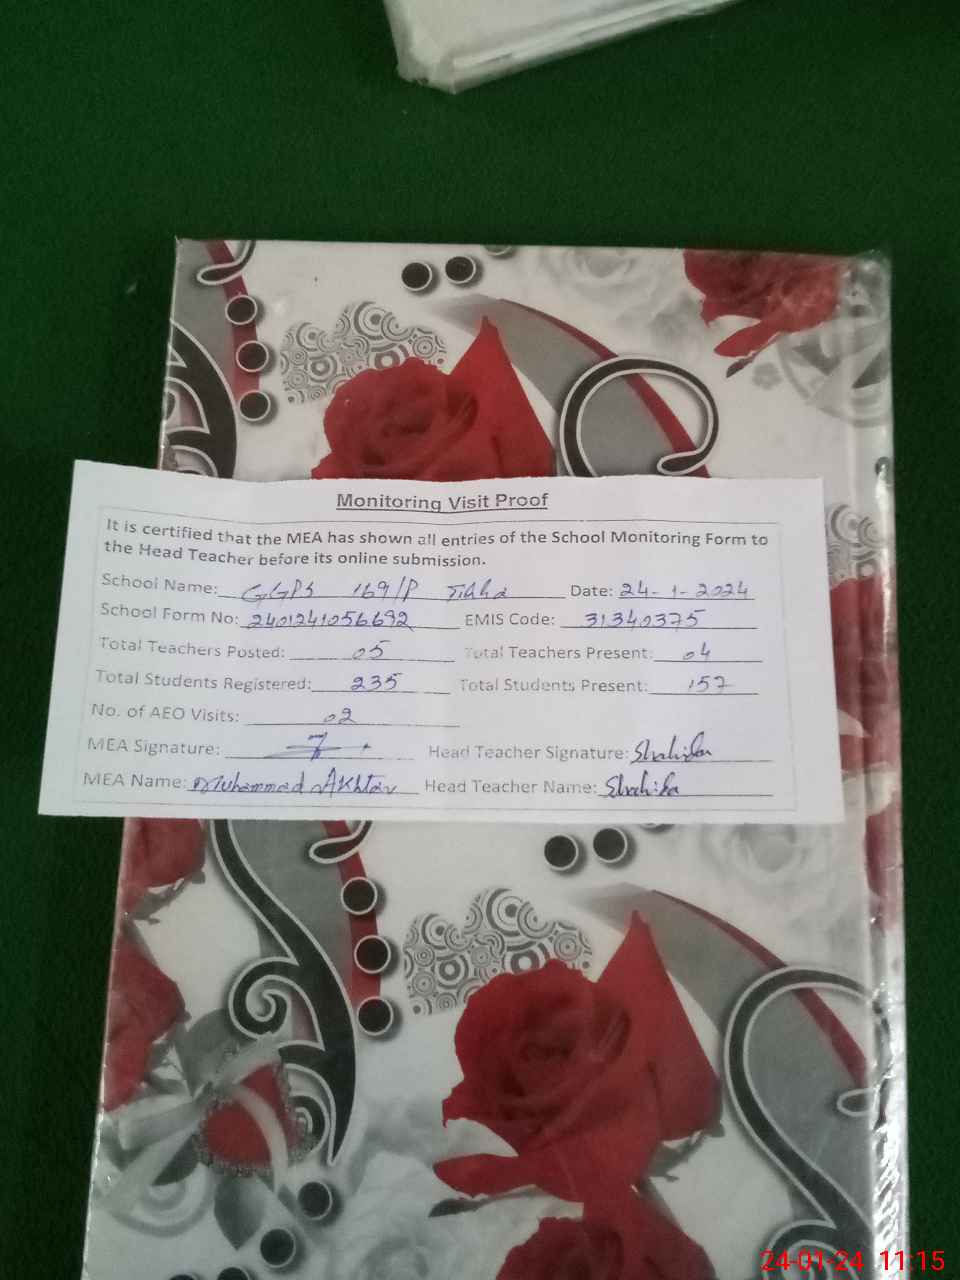 Monitoring Visit Proof
It is certified that the MEA has shown all entries of the School Monitoring Form to
the Head Teacher before its online submission.
School Name: GGPS 169/P Date: 24-1-2024
School Form No: 2401241056692 EMIS Code: 31340375
Total Teachers Posted: 05 Total Teachers Present: 04
Total Students Registered: 235 Total Students Present: 157
No. of AEO Visits: 02
MEA Signature: Head Teacher Signature:
MEA Name: Muhammad Akhtar Head Teacher Name:
24-01-24 11:15